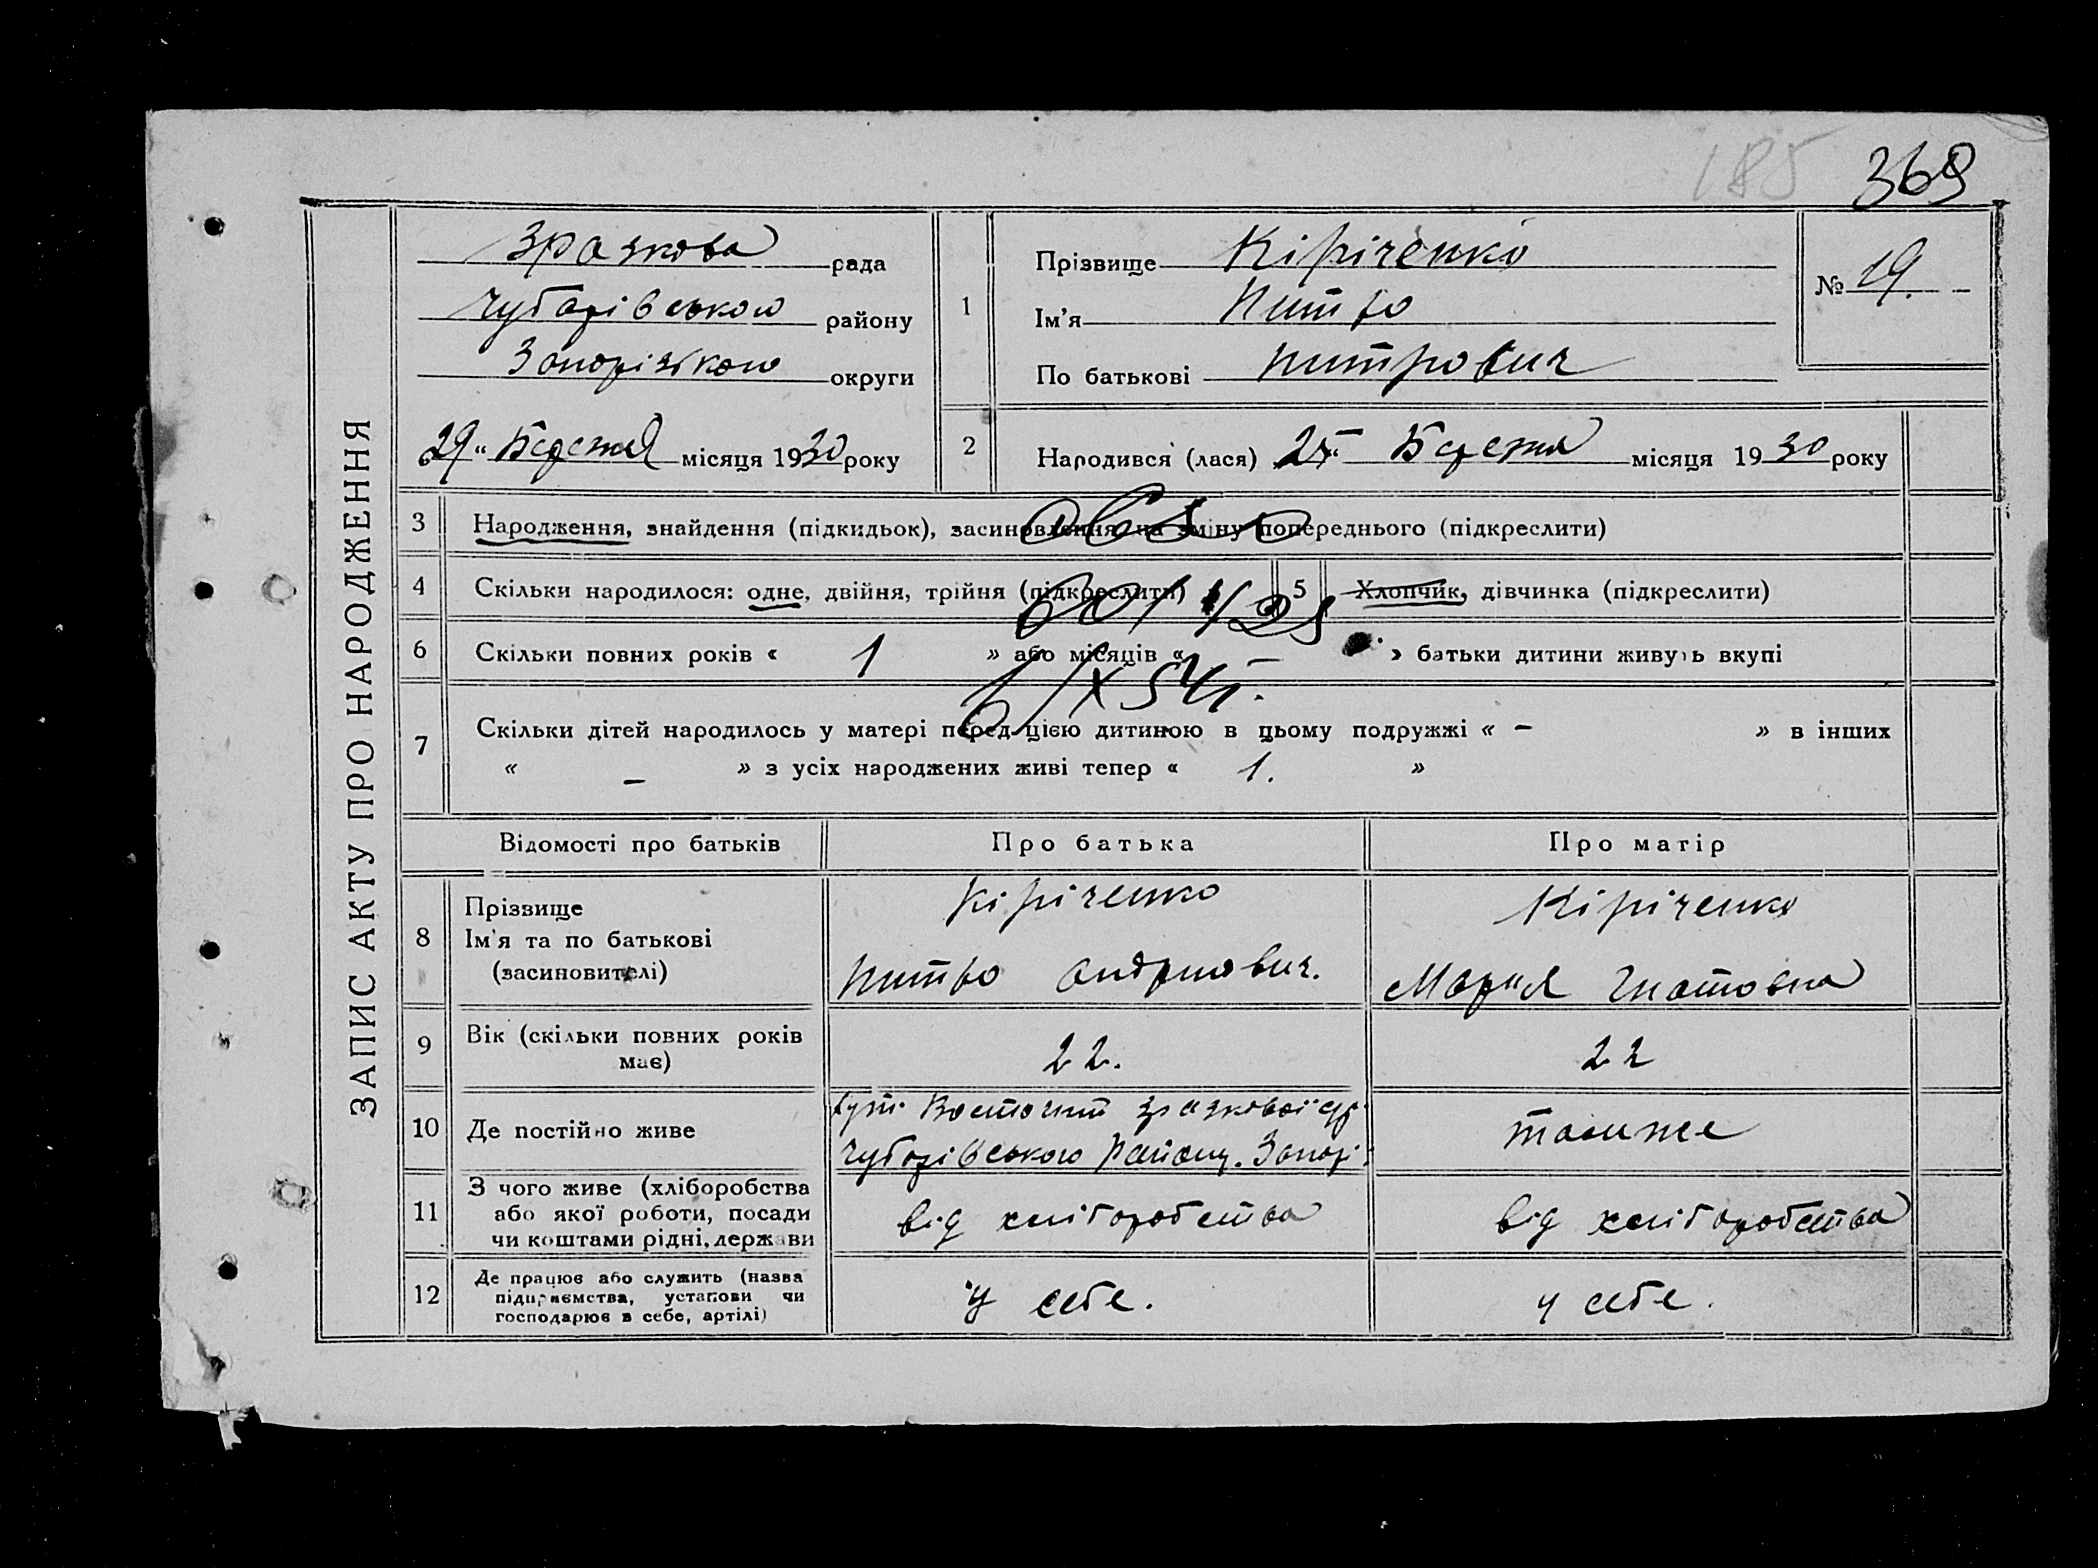 185 369
ЗАПИС АКТУ ПРО НАРОДЖЕННЯ
Зразкова рада
Чубарівського району
Запорізького округи
„29“ Березня місяця 1930 року
1
Прізвище Кіріченко
Ім'я Митро
По батькові Митрович
№ 19.
2
Народився (лася) Березня місяця 1930 року
3 Народження, знайдення (підкидьок), засиновлення на зміну попереднього (підкреслити)
4 Скільки народилося: одне, двійня, трійня (підкреслити) 5 Хлопчик, дівчинка (підкреслити)
6 Скільки повних років « 1 » або місяців « — » батьки дитини живуть вкупі
7 Скільки дітей народилось у матері перед цією дитиною в цьому подружжі « – » в інших
« – » з усіх народжених живі тепер « 1. »
Відомості про батьків Про батька Про матір
8 Прізвище
Ім'я та по батькові
(засиновителі)
Кіріченко
Митро Андрійович.
Кіріченко
Мария Гнатовна
9 Вік (скільки повних років
має)
22.
22
10 Де постійно живе
хут. Восточний Зразкової с/р.
Чубарівського Району. Запорі.
також
11 З чого живе (хліборобства
або якої роботи, посади
чи коштами рідні, держави
від хліборобства
від хліборобства
12 Де працює або служить (назва
підприємства, установи чи
господарює в себе, артілі)
у себе.
у себе.